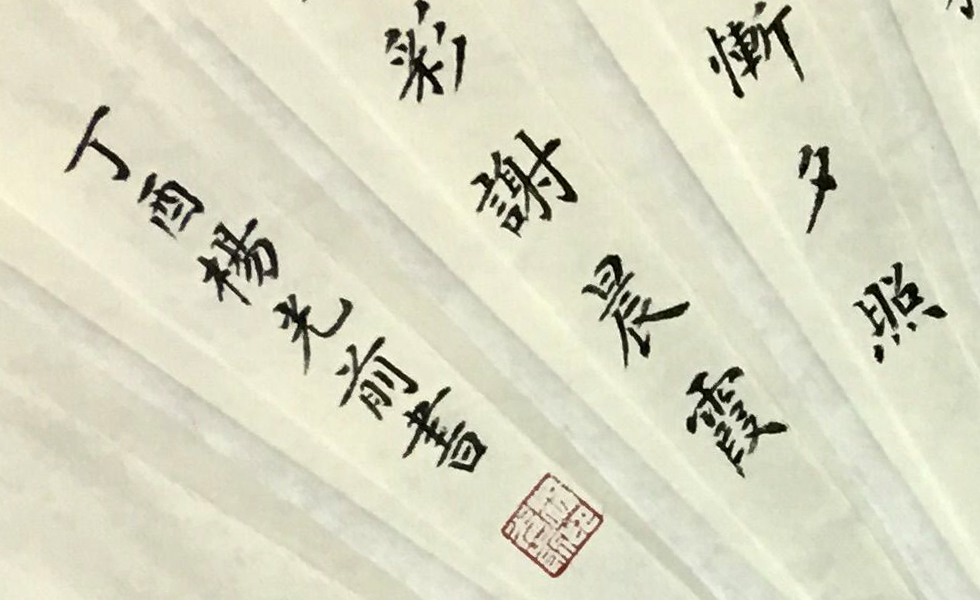 慚夕照
彩謝晨霞
丁酉楊光前書